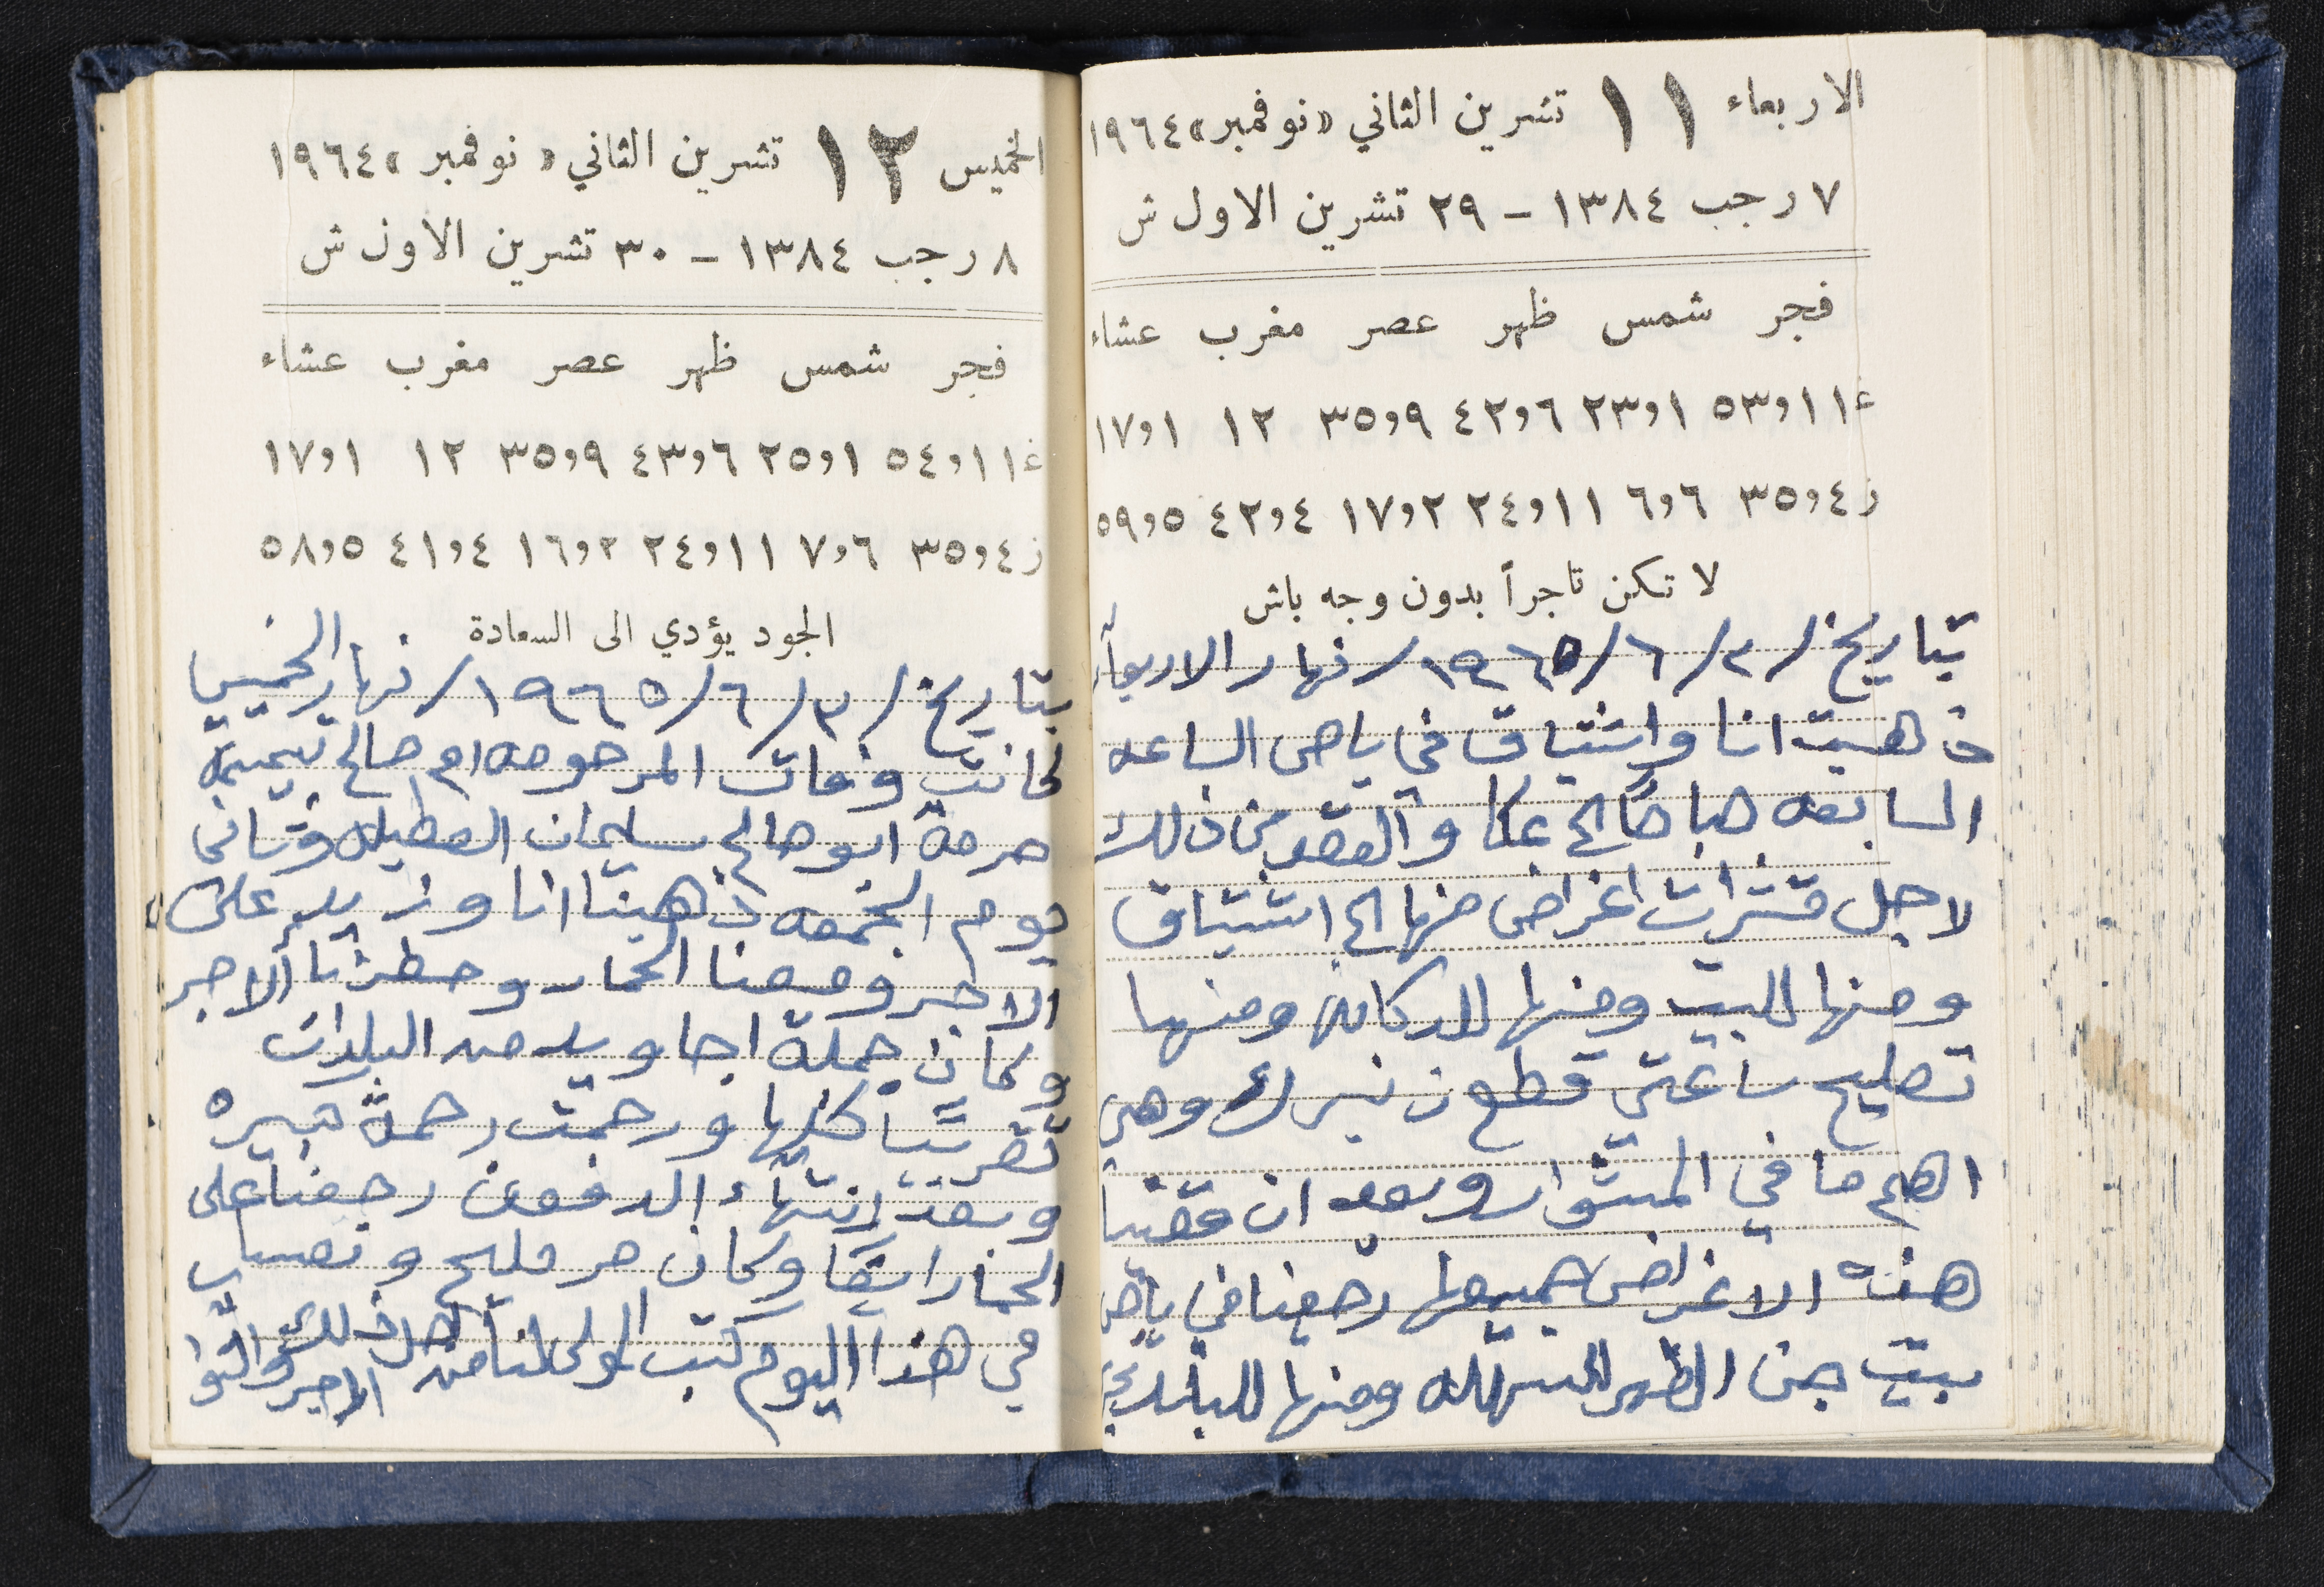 الاربعاء ١١ تشرين الثاني «نوفمبر» ١٩٦٤
٧ رجب ١٣٨٤ - ٢٩ تشرين الاول ش
فجر شمس ظهر عصر مغرب عشاء
غ ١١و٥٣ ١و٢٣ ٦و٤٢ ٩و٣٥ ١٢ ١و١٧
ز ٤و٣٥ ٦و٦ ١١و٢٤ ٢و١٧ ٤و٤٢ ٥و٥٩
لا تكن تاجراً بدون وجه باش
بتاريخ /٢/٦/١٩٦٥/ نهار الاربعاء
ذهبت انا واشتياق في باص الساعه
السابعه صباحًا الى عكا والقصد من ذلك
لاجل مشترات اغراض منها الى اشتياق
ومنها للبيت ومنها للدكانه ومنها
تصليح ساعتي قطع زنبرك وهي
اهم ما في المشوار وبعد ان قضينا
هذه الاغراض جميعها رجعنا في باص
بيت جن الظهر للسهله ومنها للبلد
الخميس ١٢ تشرين الثاني «نوفمبر» ١٩٦٤
٨ رجب ١٣٨٤ - ٣٠ تشرين الاول ش
فجر شمس ظهر عصر مغرب عشاء
غ ١١و٥٤ ١و٢٥ ٦و٤٣ ٩و٣٥ ١٢ ١و١٧
ز ٤و٣٥ ٦و٧ ١١و٢٤ ٢و١٦ ٤و٤١ ٥و٥٨
الجود يؤدي الى السعادة
بتاريخ /٣/٦/١٩٦٥/ نهار الخميس
كانت وفات المرحومه ام صالح
حرمة ابو صالح سليمان وثاني
يوم الجمعه ذهبنا انا وزيد على
الاجر ومعنا الحمار وحظرنا الاجر
وكان جملة اجاويد من البلدان
تقريبًا كلها ورحمت رحمة كبيره
وبعد انتهاء الدفون رجعنا على
الحمار ايضًا وكان حر مليح ونصيب
في هذا اليوم كتب المولى لنا من
الاجر والثواب